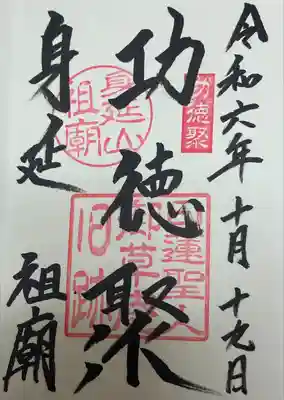 令和六年十月十九日
功徳聚
功徳聚
身延山
祖廟
日蓮聖人
御草庵
旧跡
身延
祖廟